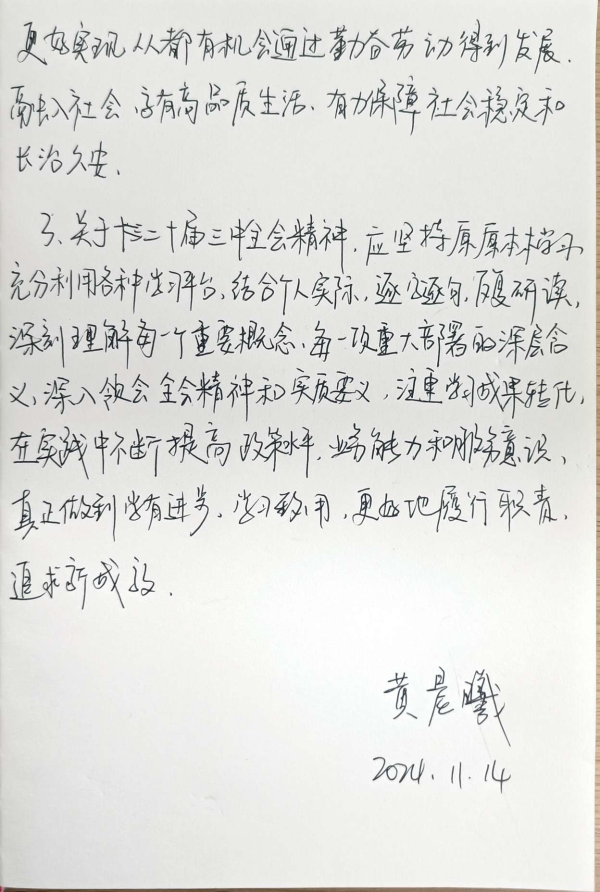 更好实现人人都有机会通过勤奋劳动得到发展、
融入社会、享有高品质生活、有力保障社会稳定和
长治久安。
3、关于二十届三中全会精神,应坚持原原本本学习
充分利用各种学习平台,结合个人实际,逐字逐句,反复研读,
深刻理解每一个重要概念、每一项重大部署的深层含
义,深入领会全会精神和实质要义,注重学习成果转化,
在实践中不断提高政策水平,业务能力和服务意识、
真正做到学有进步,学习致用,更好地履行职责,
追求新成效.
黄晨曦
2024.11.14